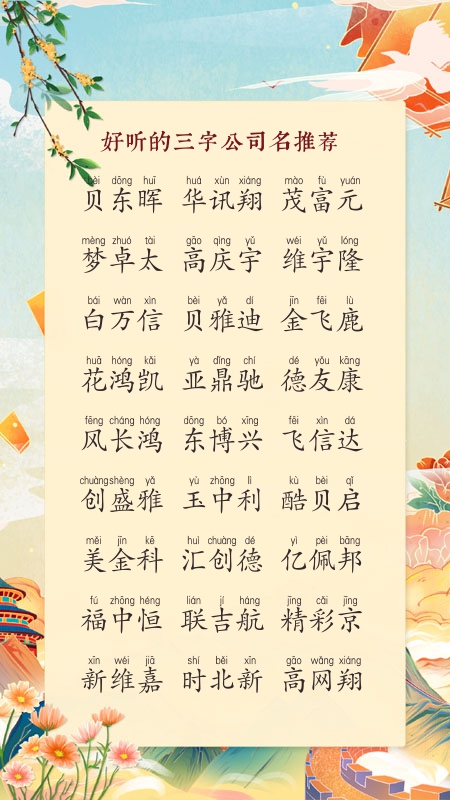 好听的三字公司名推荐
bèi dōng huī huá xùn xiáng mào fù yuán
贝东晖 华讯翔 茂富元
mèng zhuó tài gāo qìng yǔ wéi yǔ lóng
梦卓太 高庆宇 维宇隆
bái wàn xìn bèi yǎ dí jīn fēi lù
白万信 贝雅迪 金飞鹿
huā hóng kǎi yà dǐng chí dé yǒu kāng
花鸿凯 亚鼎驰 德友康
fēng cháng hóng dōng bó xīng fēi xìn dá
风长鸿 东博兴 飞信达
chuàng shèng yǎ yù zhōng lì kù bèi qǐ
创盛雅 玉中利 酷贝启
měi jīn kē huì chuàng dé yì pèi bāng
美金科 汇创德 亿佩邦
fú zhōng héng lián jí háng jīng cǎi jīng
福中恒 联吉航 精彩京
xīn wéi jiā shí běi xīn gāo wǎng xiáng
新维嘉 时北新 高网翔